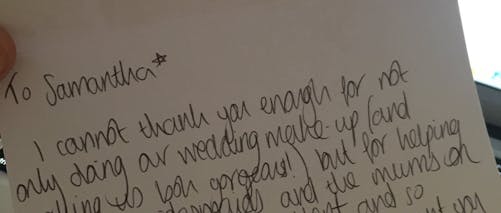 To Samantha☆
I cannot thank you enough for not
only doing our wedding make-up (and
us look gorgeous!) but for helping
and the mums on
and so
you